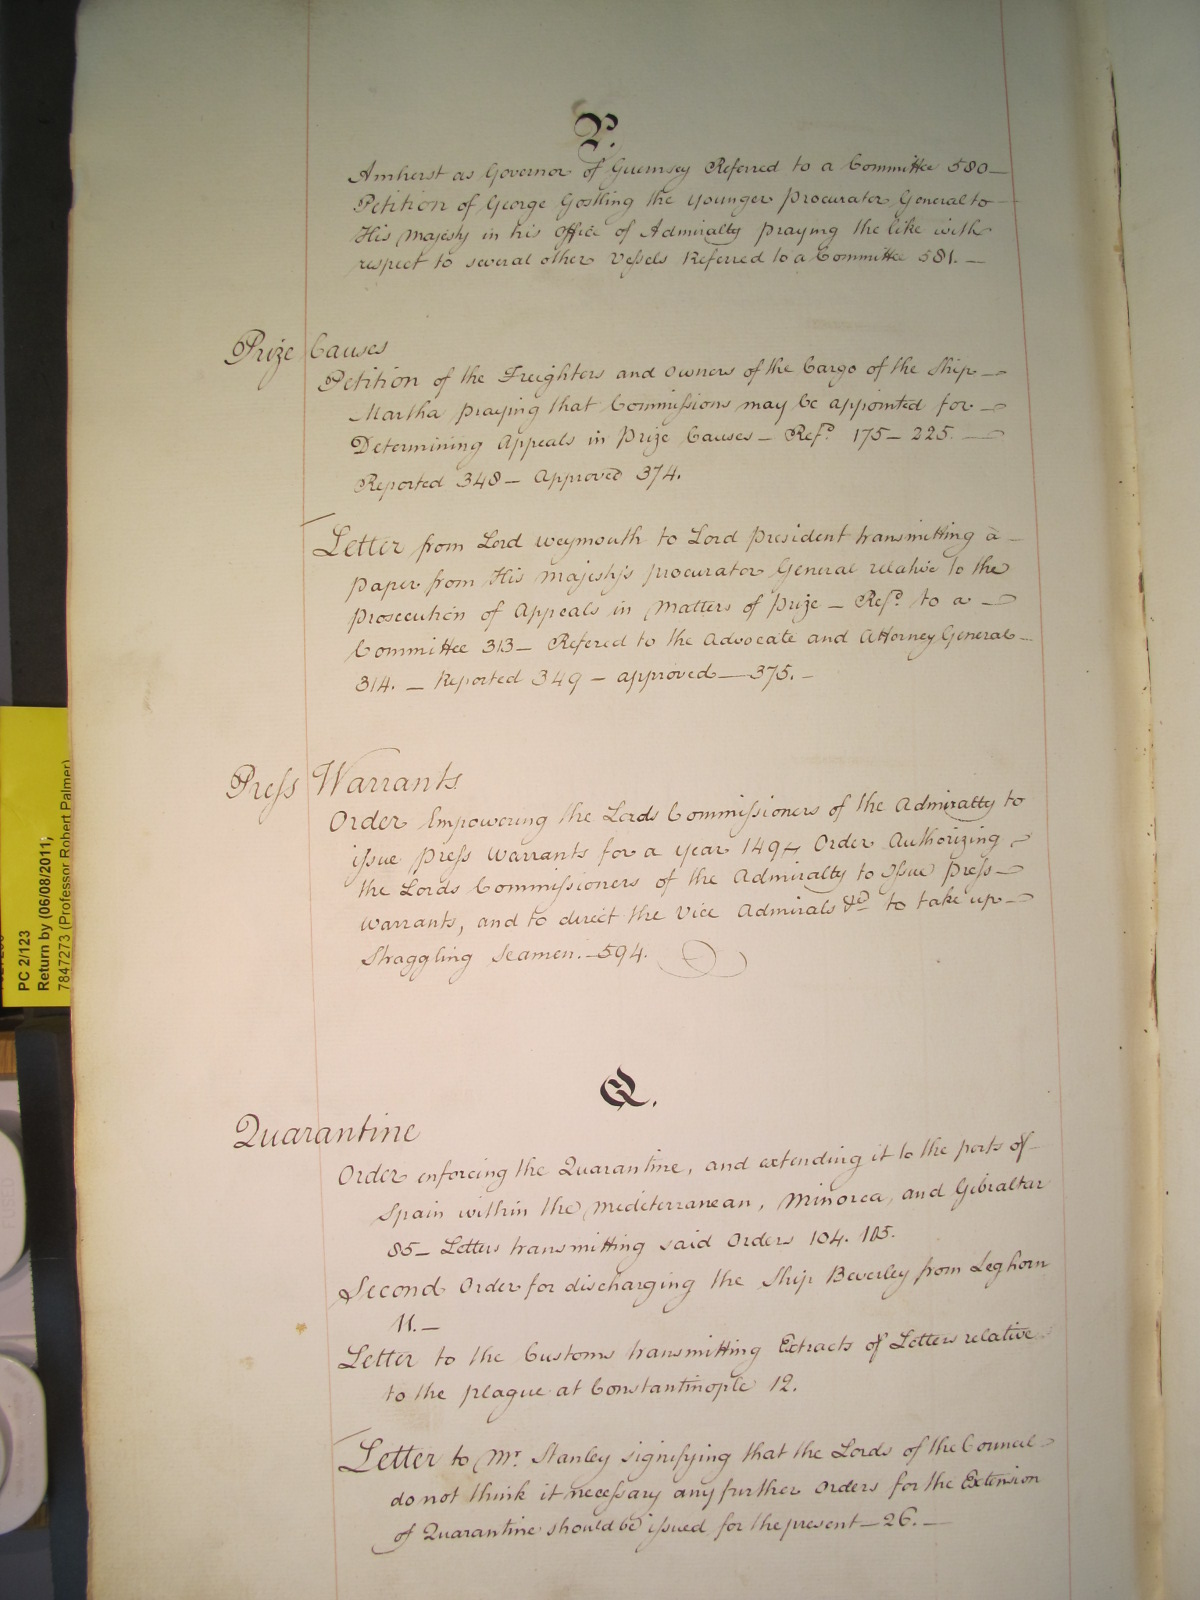 P.
Amherst as Governor of Guernsey Referred to a Committee 580—
Petition of George Gostling the younger Procurator General to
His Majesty in his Office of Admiralty praying the like with
respect to several other Vessels Referred to a Committee 581. —
Prize Causes
Petition of the Freighters and Owners of the Cargo of the Ship
Martha praying that Commissions may be appointed for
Determining Appeals in Prize Causes — Refd. 175 — 225.
Reported 348 — Approved 374.
Letter from Lord Weymouth to Lord President transmitting a
paper from His Majesty's procurator General relative to the
prosecution of Appeals in Matters of Prize — Refd. to a
Committee 313 — Refered to the Advocate and Attorney General
314. — Reported 349 — approved — 375. —
Press Warrants
Order Empowering the Lords Commissioners of the Admiralty to
issue Press Warrants for a year 149 Order Authorizing
the Lords Commissioners of the Admiralty to Issue Press
warrants, and to direct the Vice Admirals &c to take up
Straggling Seamen. — 594.
Q.
Quarantine
Order enforcing the Quarantine, and extending it to the ports of
Spain within the Mediterranean, Minorca, and Gibraltar
85 — Letters transmitting said Orders 104. 105.
Second Order for discharging the Ship Beverley from Leghorn
11. —
Letter to the Customs transmitting Extracts of Letters relative
to the plague at Constantinople 12.
Letter to Mr. Stanley signifying that the Lords of the Council
do not think it necessary any further Orders for the Extension
of Quarantine should be issued for the present — 26. —
PC 2/123
Return by (06/08/2011;
7847273 (Professor Robert Palmer)